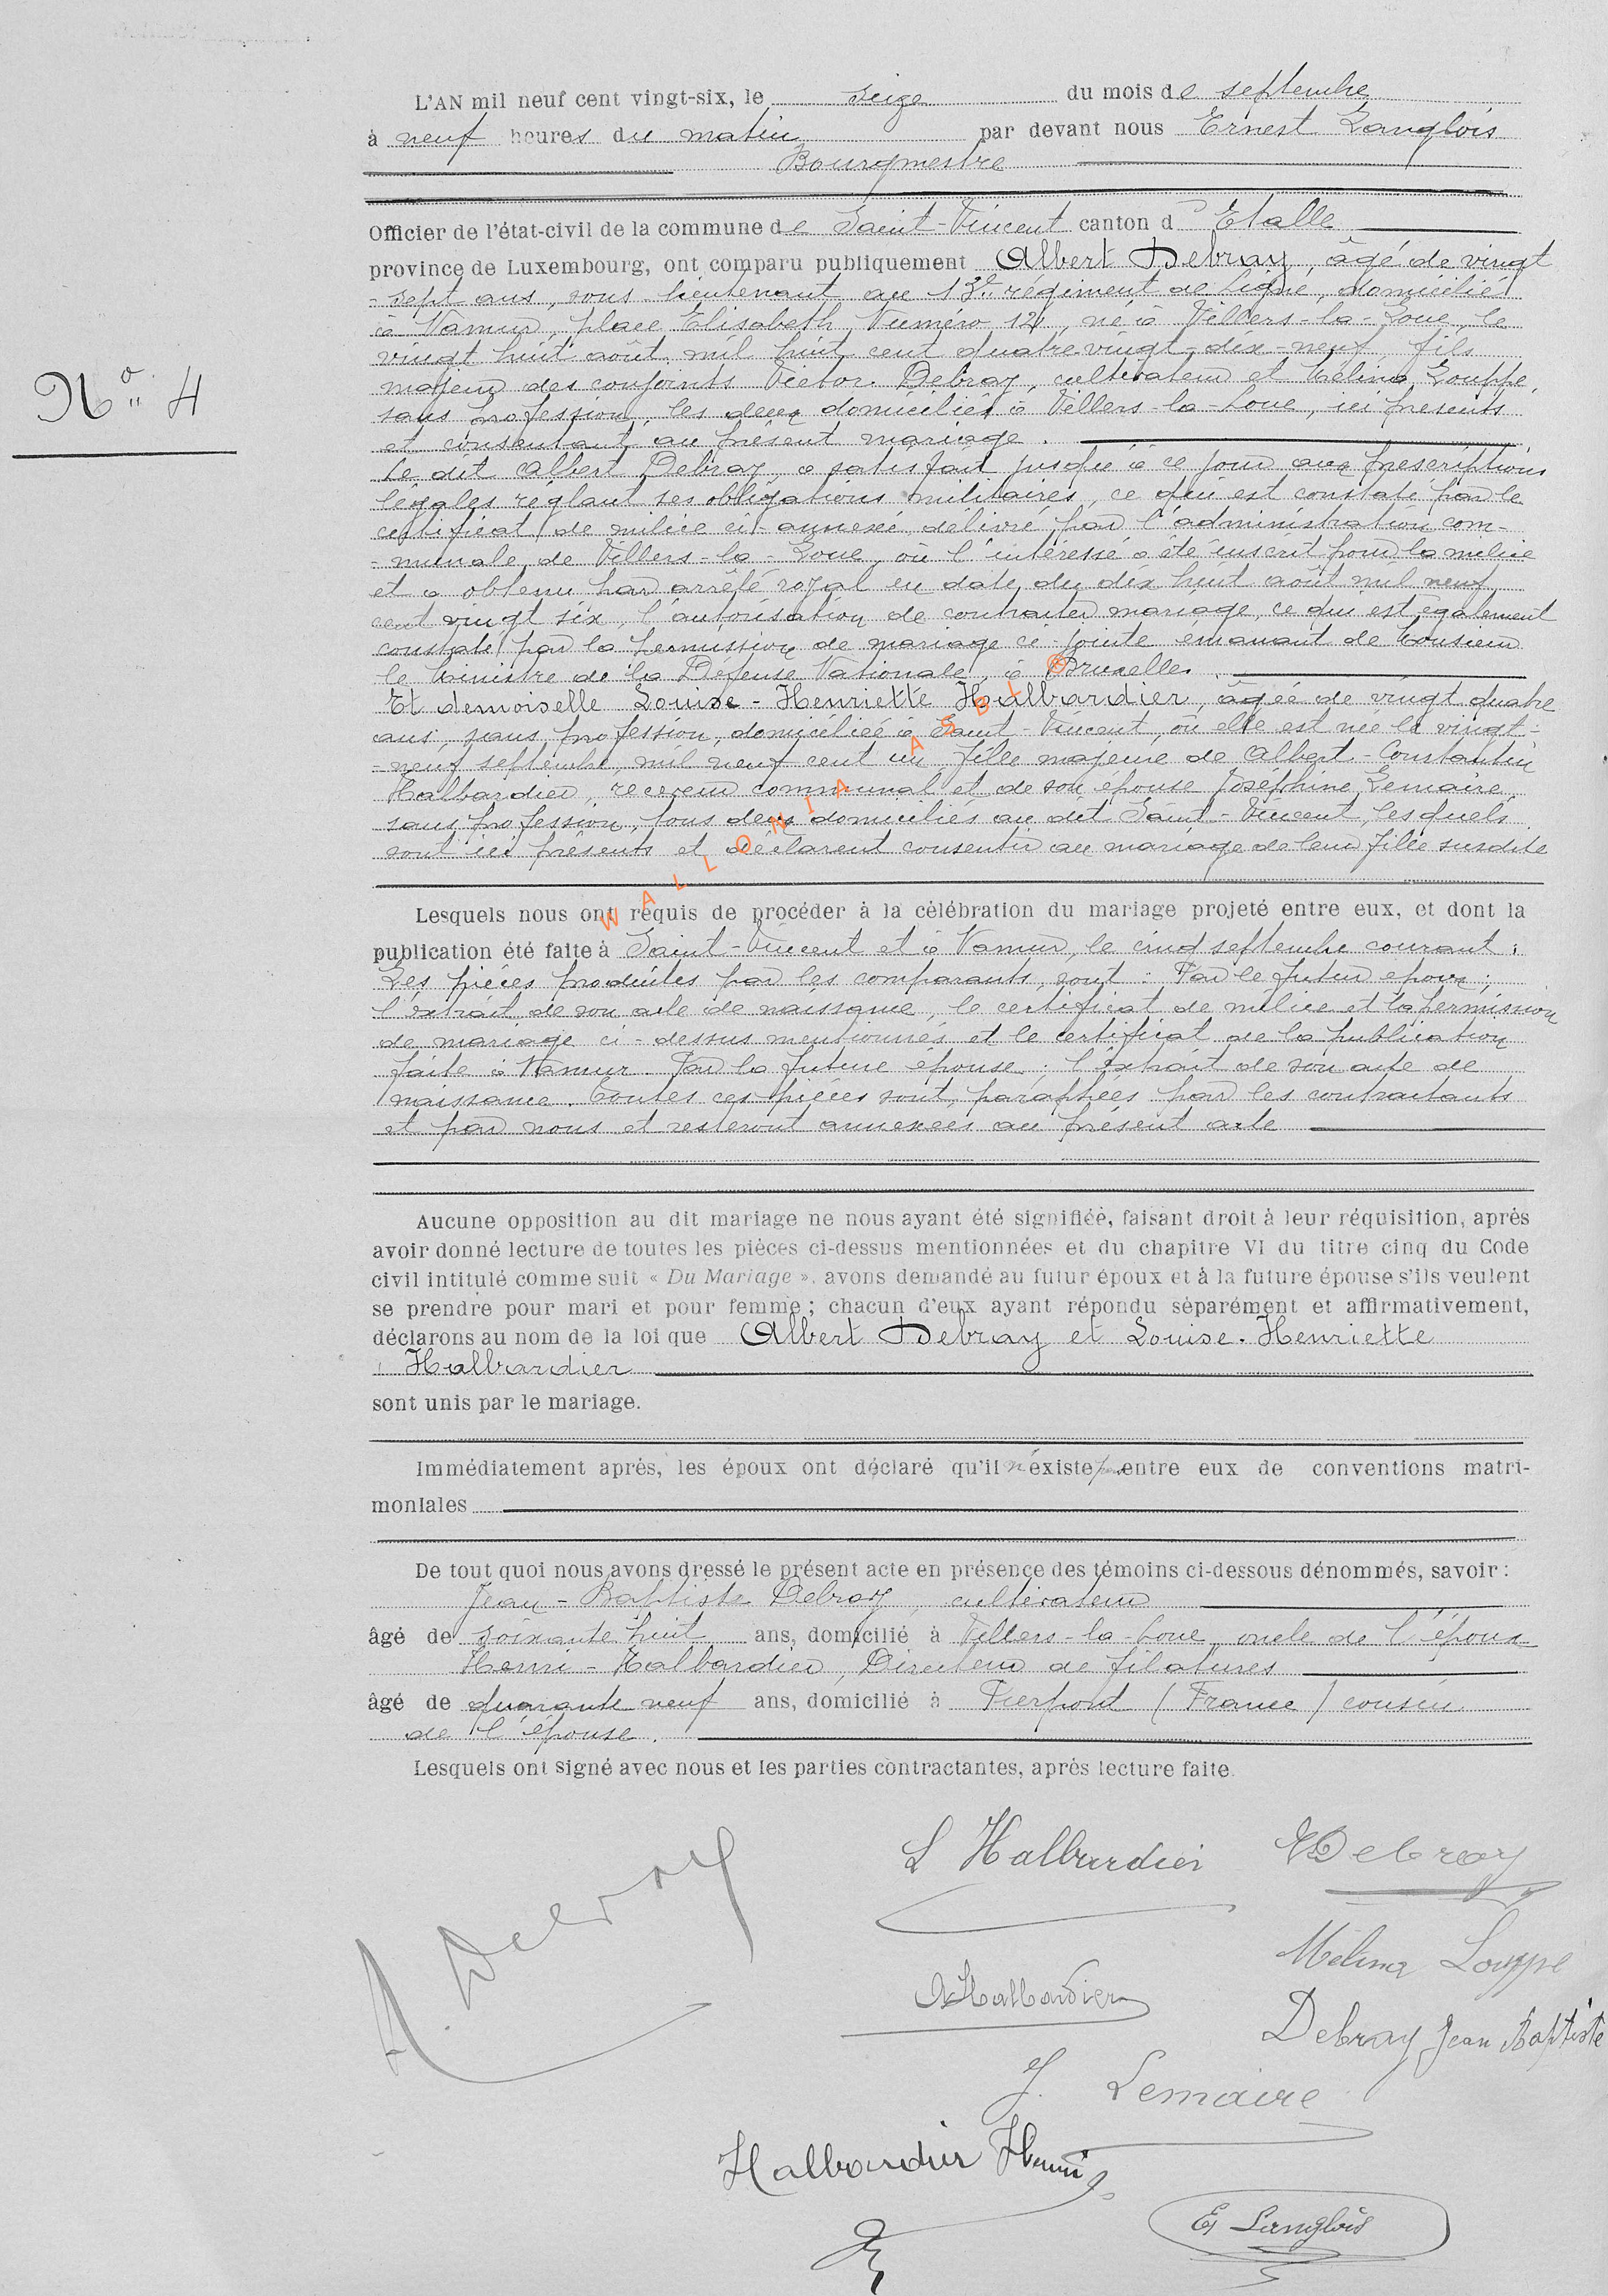 L'AN mil neuf cent vingt-six, le seize du mois de septembre
à neuf heures du matin par devant nous Ernest Langlois
Bourgmestre
Officier de l'état-civil de la commune de Saint-Vincent canton d'Etalle
province de Luxembourg, ont comparu publiquement Albert Debray, âgé de vingt
-sept ans, sous lieutenant au 13e régiment de ligne, domicilié
N° 4
à Namur, place Elisabeth, Numéro 12, né à Villers-la-Loue, le
vingt huit août mil huit cent quatre-vingt-dix-neuf, fils
majeur des conjoints Victor Debray, cultivateur et Mélina Louppe,
sans profession, les deux domiciliés à Villers-la-Loue, ici présents
et consentant au présent mariage.
Le dit Albert Debray a satisfait jusque à ce jour aux prescriptions
légales réglant ses obligations militaires, ce qui est constaté par le
certificat de milice ci-annexé, délivré par l'administration com-
-munale de Villers-la-Loue, où l'intéressé a été inscrit pour la milice
et a obtenu par arrêté royal en date du dix huit août mil neuf
cent vingt six, l'autorisation de contracter mariage, ce qui est également
constaté par la permission de mariage ci-jointe emanant de Monsieur
le Ministre de la Défense Nationale, à Bruxelles.
Et demoiselle Louise-Henriette Halbardier, âgée de vingt quatre
ans, sans profession, domiciliée à Saint-Vincent, où elle est née le vingt-
-neuf septembre, mil neuf cent un, fille majeure de Albert-Constantin
Halbardier, receveur communal et de son épouse Joséphine Lemaire,
sans profession, tous deux domiciliés au dit Saint-Vincent, lesquels
sont ici présents et déclarent consentir au mariage de leur fille susdite
WALLONIA ASBL ®
Lesquels nous ont requis de procéder à la célébration du mariage projeté entre eux, et dont la
publication été faite à Saint-Vincent et à Namur, le cinq septembre courant;
Les pièces produites par les comparants, sont: Par le futur epoux;
l'extrait de son acte de naissance, le certificat de milice et la permission
de mariage ci-dessus mentionnés et le certificat de la publication
faite à Namur. Par la future épouse: l'extrait de son acte de
naissance. Toutes ces pièces sont paraphées par les contractants
et par nous et resteront annexées au présent acte
Aucune opposition au dit mariage ne nous ayant été signifiée, faisant droit à leur réquisition, après
avoir donné lecture de toutes les pièces ci-dessus mentionnées et du chapitre VI du titre cinq du Code
civil intitulé comme suit « Du Mariage ». avons demandé au futur époux et à la future épouse s'ils veulent
se prendre pour mari et pour femme; chacun d'eux ayant répondu séparément et affirmativement,
déclarons au nom de la loi que Albert Debray et Louise-Henriette
Halbardier
sont unis par le mariage.
Immédiatement après, les époux ont déclaré qu'il n'existe pas entre eux de conventions matri-
moniales
De tout quoi nous avons dressé le présent acte en présence des témoins ci-dessous dénommés, savoir:
Jean-Baptiste Debray, cultivateur
âgé de soixante huit ans, domicilié à Villers-la-Loue, oncle de l'époux
Henri-Halbardier, Directeur de filatures
âgé de quarante neuf ans, domicilié à Pierpont (France) cousin
de l'épouse.
Lesquels ont signé avec nous et les parties contractantes, après lecture faite.
A. Debray
L Halbardier
VDebray
Mélina Louppe
A Halbardier
Debray Jean Baptiste
J. Lemaire
Halbardier Henri
E Langlois